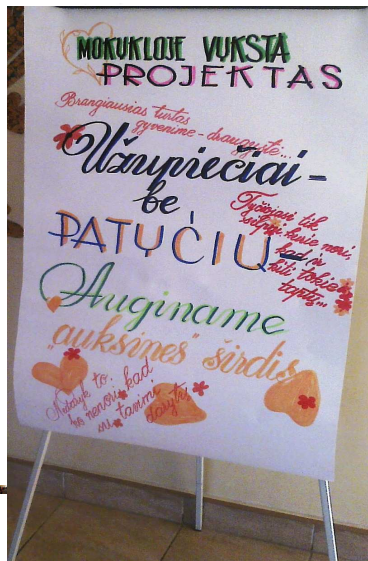 MOKUKLOJE VYKSTA
PROJEKTAS
Brangiausias turtas
gyvenime - draugystė...
Užnupiečiai -
be
PATYČIŲ -
Tyčiojasi tik
silpni, kurie nori,
kad ir
kiti tokie
taptų...
Auginame
"auksines" širdis
Nedaryk to:
ko nenori, kad
su tavimi
darytų